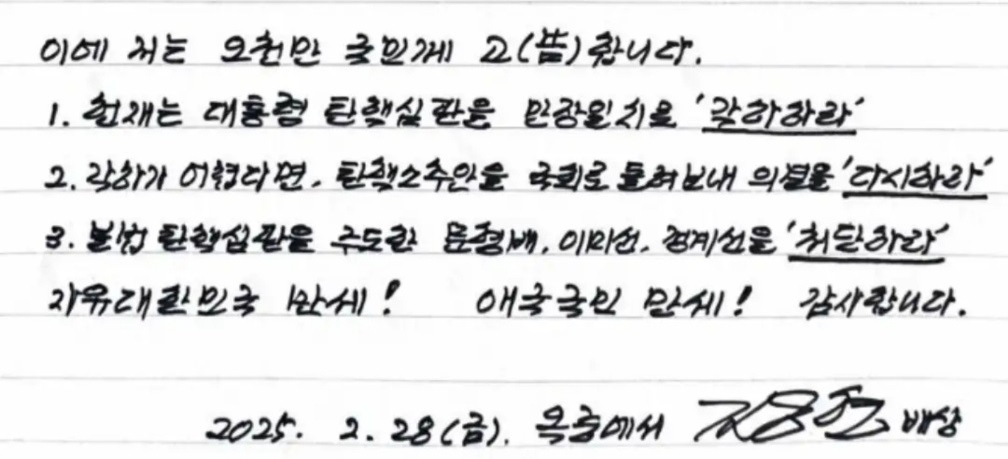 이에 저는 오천만 국민께 고(뜸)합니다.
1. 헌재는 대통령 탄핵심판을 만장일치로 '각하하라'
2. 각하가 어렵다면, 탄핵소추안을 국회로 돌려보내 의결을 '다시하라'
3. 불법 탄핵심판을 주도한 문형배, 이미선, 정계선을 '처단하라'
자유대한민국 만세! 애국국민 만세! 감사합니다.
2025. 2. 28(금). 옥중에서 배상